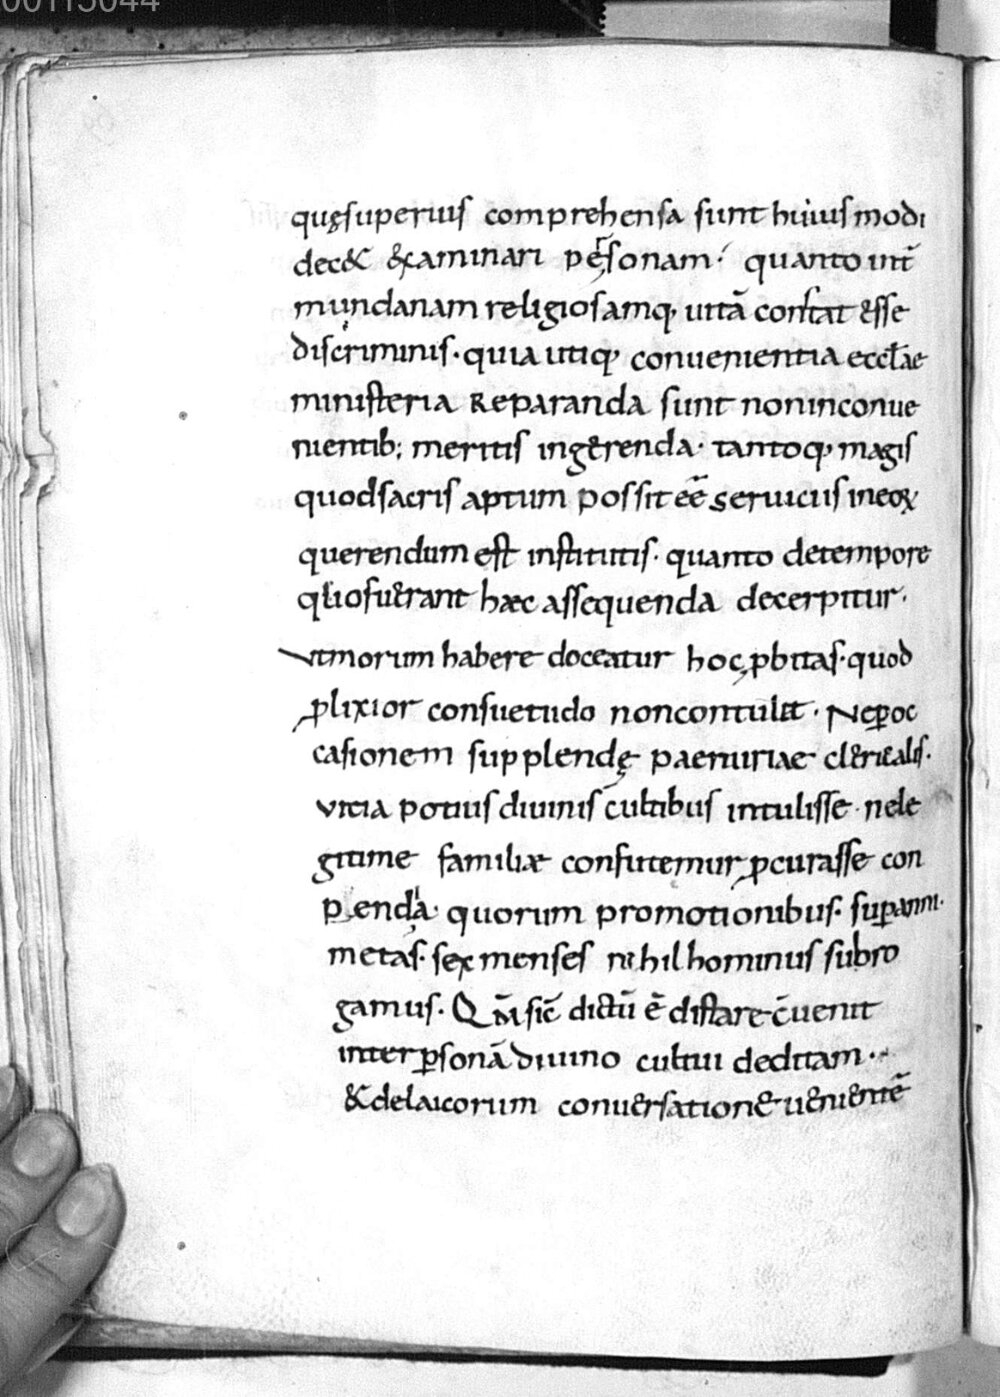 00113044
quęsuperius comprehensa sunt huius modi
dec& &xaminari pe͞rsonam· quanto int̄
mundanam religiosamq· uitā constat esse
discriminis· quia utiq· conuenientia eccłae
ministeria Reparanda sunt noninconue
nientib; meritis ingerenda· tantoq· magis
quodsacris aptum possit eē seruiciis ineox
querendum est institutis· quanto detempore
qłiosuerant haec assequenda decerpitur·
Vtmorum habere doceatur hoc ꝓbitas· quod
ꝓlixior consuetudo noncontulit· Neꝑoc
casionem supplendę paenuriae clericalis·
uitia potius diuinis cultibus intulisse· nele
gitime familiæ confutemur ꝓcurasse con
plenda· quorum promotionibus· suꝑanni·
metas· sex menses nihilhominus subro
gamus· Qm̄ sic̄ dictū ē distare c̄uenit
interꝑsonā diuino cultui deditam·
&delaicorum conuersatione uenientē